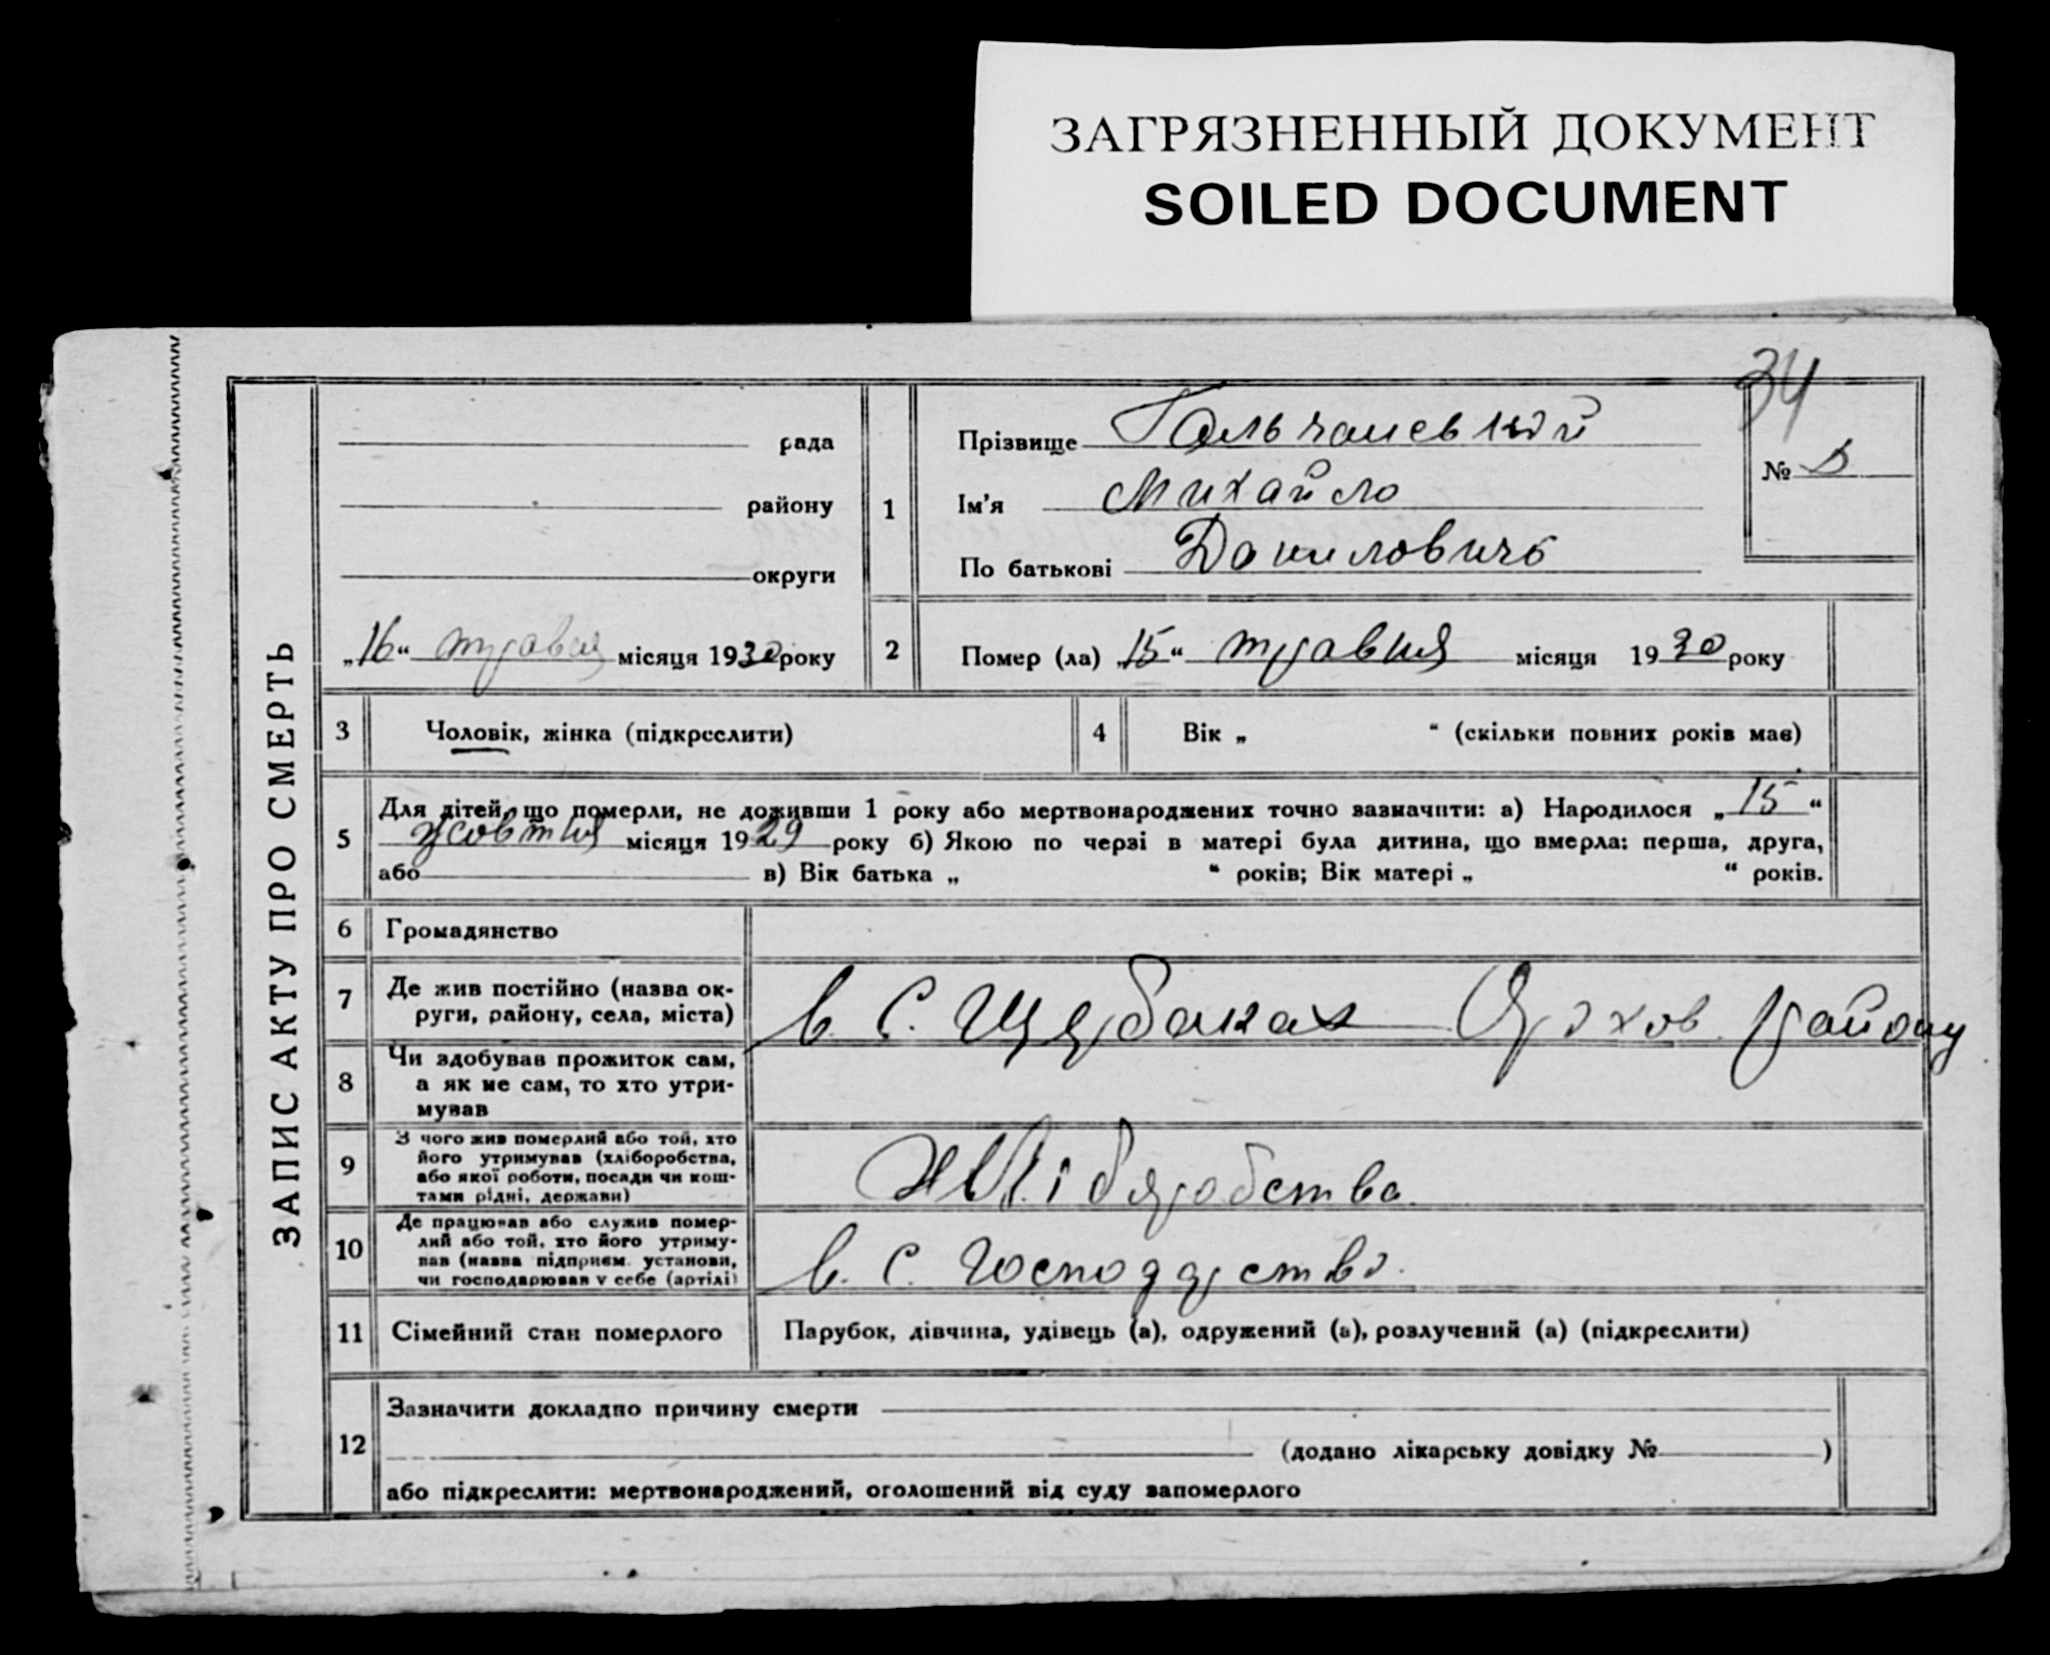 ЗАГРЯЗНЕННЫЙ ДОКУМЕНТ
SOILED DOCUMENT
34
ЗАПИС АКТУ ПРО СМЕРТЬ
рада
району
округи
„16“ травня місяця 1930 року
1
Прізвище Гальчанський
Ім'я Михайло
По батькові Данилович
№
2
Помер (ла) „15“ травня місяця 1930 року
3 Чоловік, жінка (підкреслити)
4 Вік „ “ (скільки повних років має)
5
Для дітей, що померли, не доживши 1 року або мертвонароджених точно зазначити: а) Народилося „15“
жовтня місяця 1929 року б) Якою по черзі в матері була дитина, що вмерла: перша, друга,
або в) Вік батька „ “ років; Вік матері „ “ років.
6 Громадянство
7
Де жив постійно (назва ок-
руги, району, села, міста)
в с. Щрбаках Оріхов району
8
Чи здобував прожиток сам,
а як не сам, то хто утри-
мував
9
З чого жив померлий або той, хто
його утримував (хліборобства,
або якої роботи, посади чи кош-
тами рідні, держави)
10
Де працював або служив помер-
лий або той, хто його утриму-
вав (назва підприєм. установи,
чи господарював у себе (артілі)
в. с. господрство.
11 Сімейний стан померлого
Парубок, дівчина, удівець (а), одружений (а), розлучений (а) (підкреслити)
12
Зазначити докладно причину смерти
(додано лікарську довідку № )
або підкреслити: мертвонароджений, оголошений від суду запомерлого